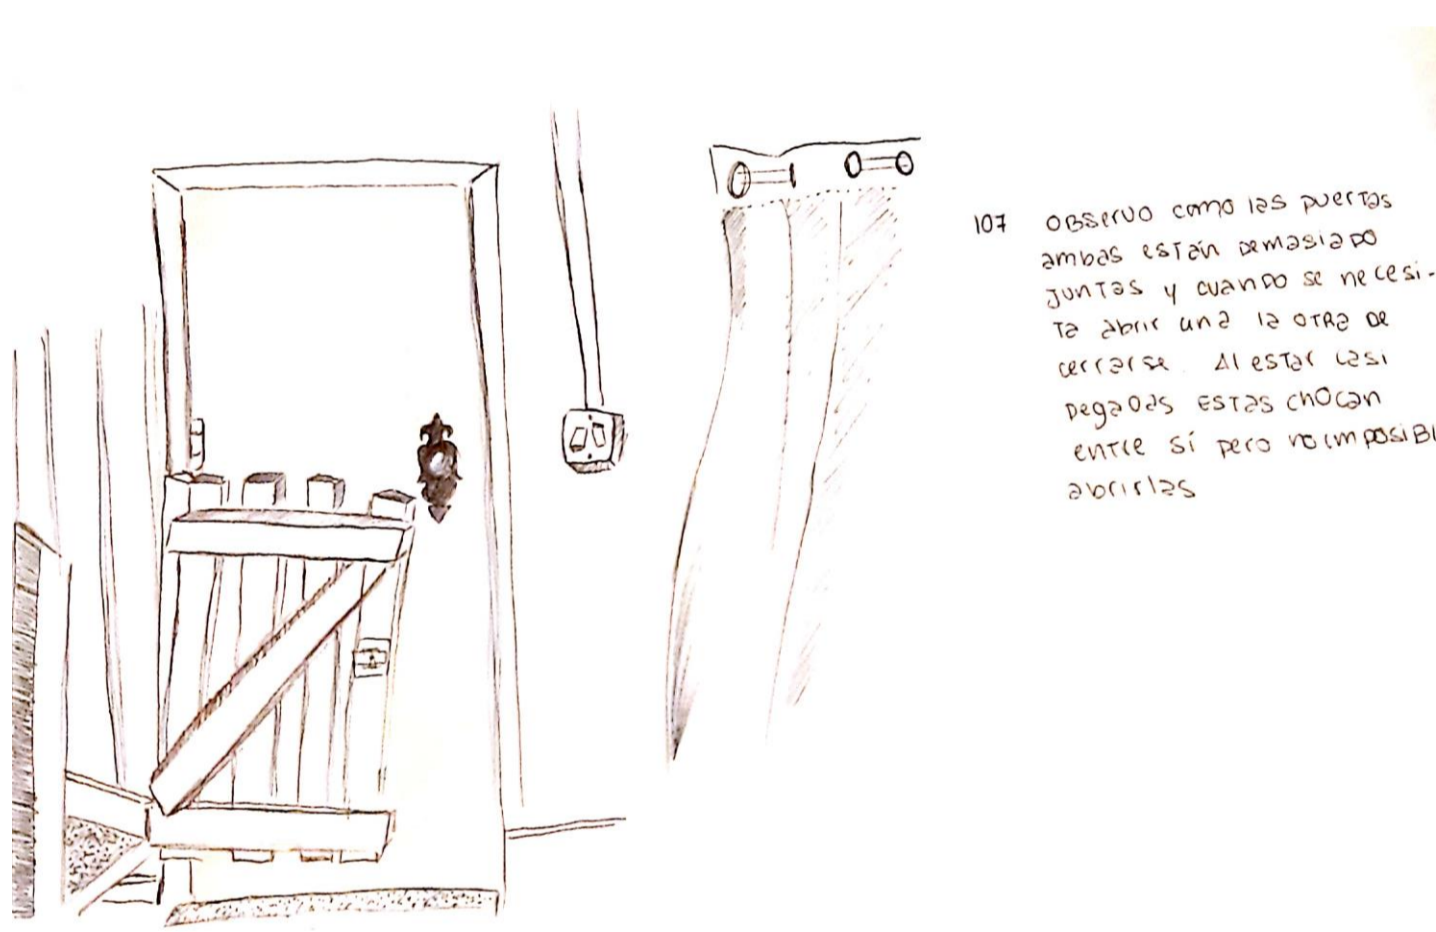 107 OBSERVO como las puertas
ambas están demasiado
juntas y cuando se necesi-
ta abrir una la otra de
cerrarse. Al estar casi
pegadas estas chocan
entre sí pero no imposibl
abrirlas